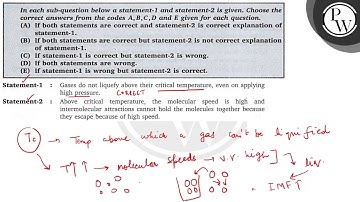 In each sub-question below a statement-1 and statement-2 is given. Choose the
correct answers from the codes A, B, C, D and E given for each question.
(A) If both statements are correct and statement-2 is correct explanation
of statement-1.
(B) If both statements are correct but statement-2 is not correct explanation
of statement-1.
(C) If statement-1 is correct but statement-2 is wrong.
(D) If both statements are wrong.
(E) If statement-1 is wrong but statement-2 is correct.
PW
Statement-1 : Gases do not liquefy above their critical temperature, even on applying
high pressure. CORRECT
Statement-2 : Above critical temperature, the molecular speed is high and
intermolecular attractions cannot hold the molecules together because
they escape because of high speed.
Tc → Temp above which a gas can't be liquified
T↑↑↑ → molecular speeds → v.v. high
liq.
IMFT